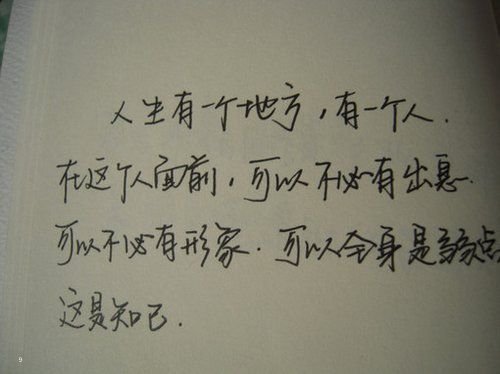 人生有一个地方，有一个人.
在这个人面前，可以不必有出息.
可以不必有形象.可以全身是弱点
这是知己.
9